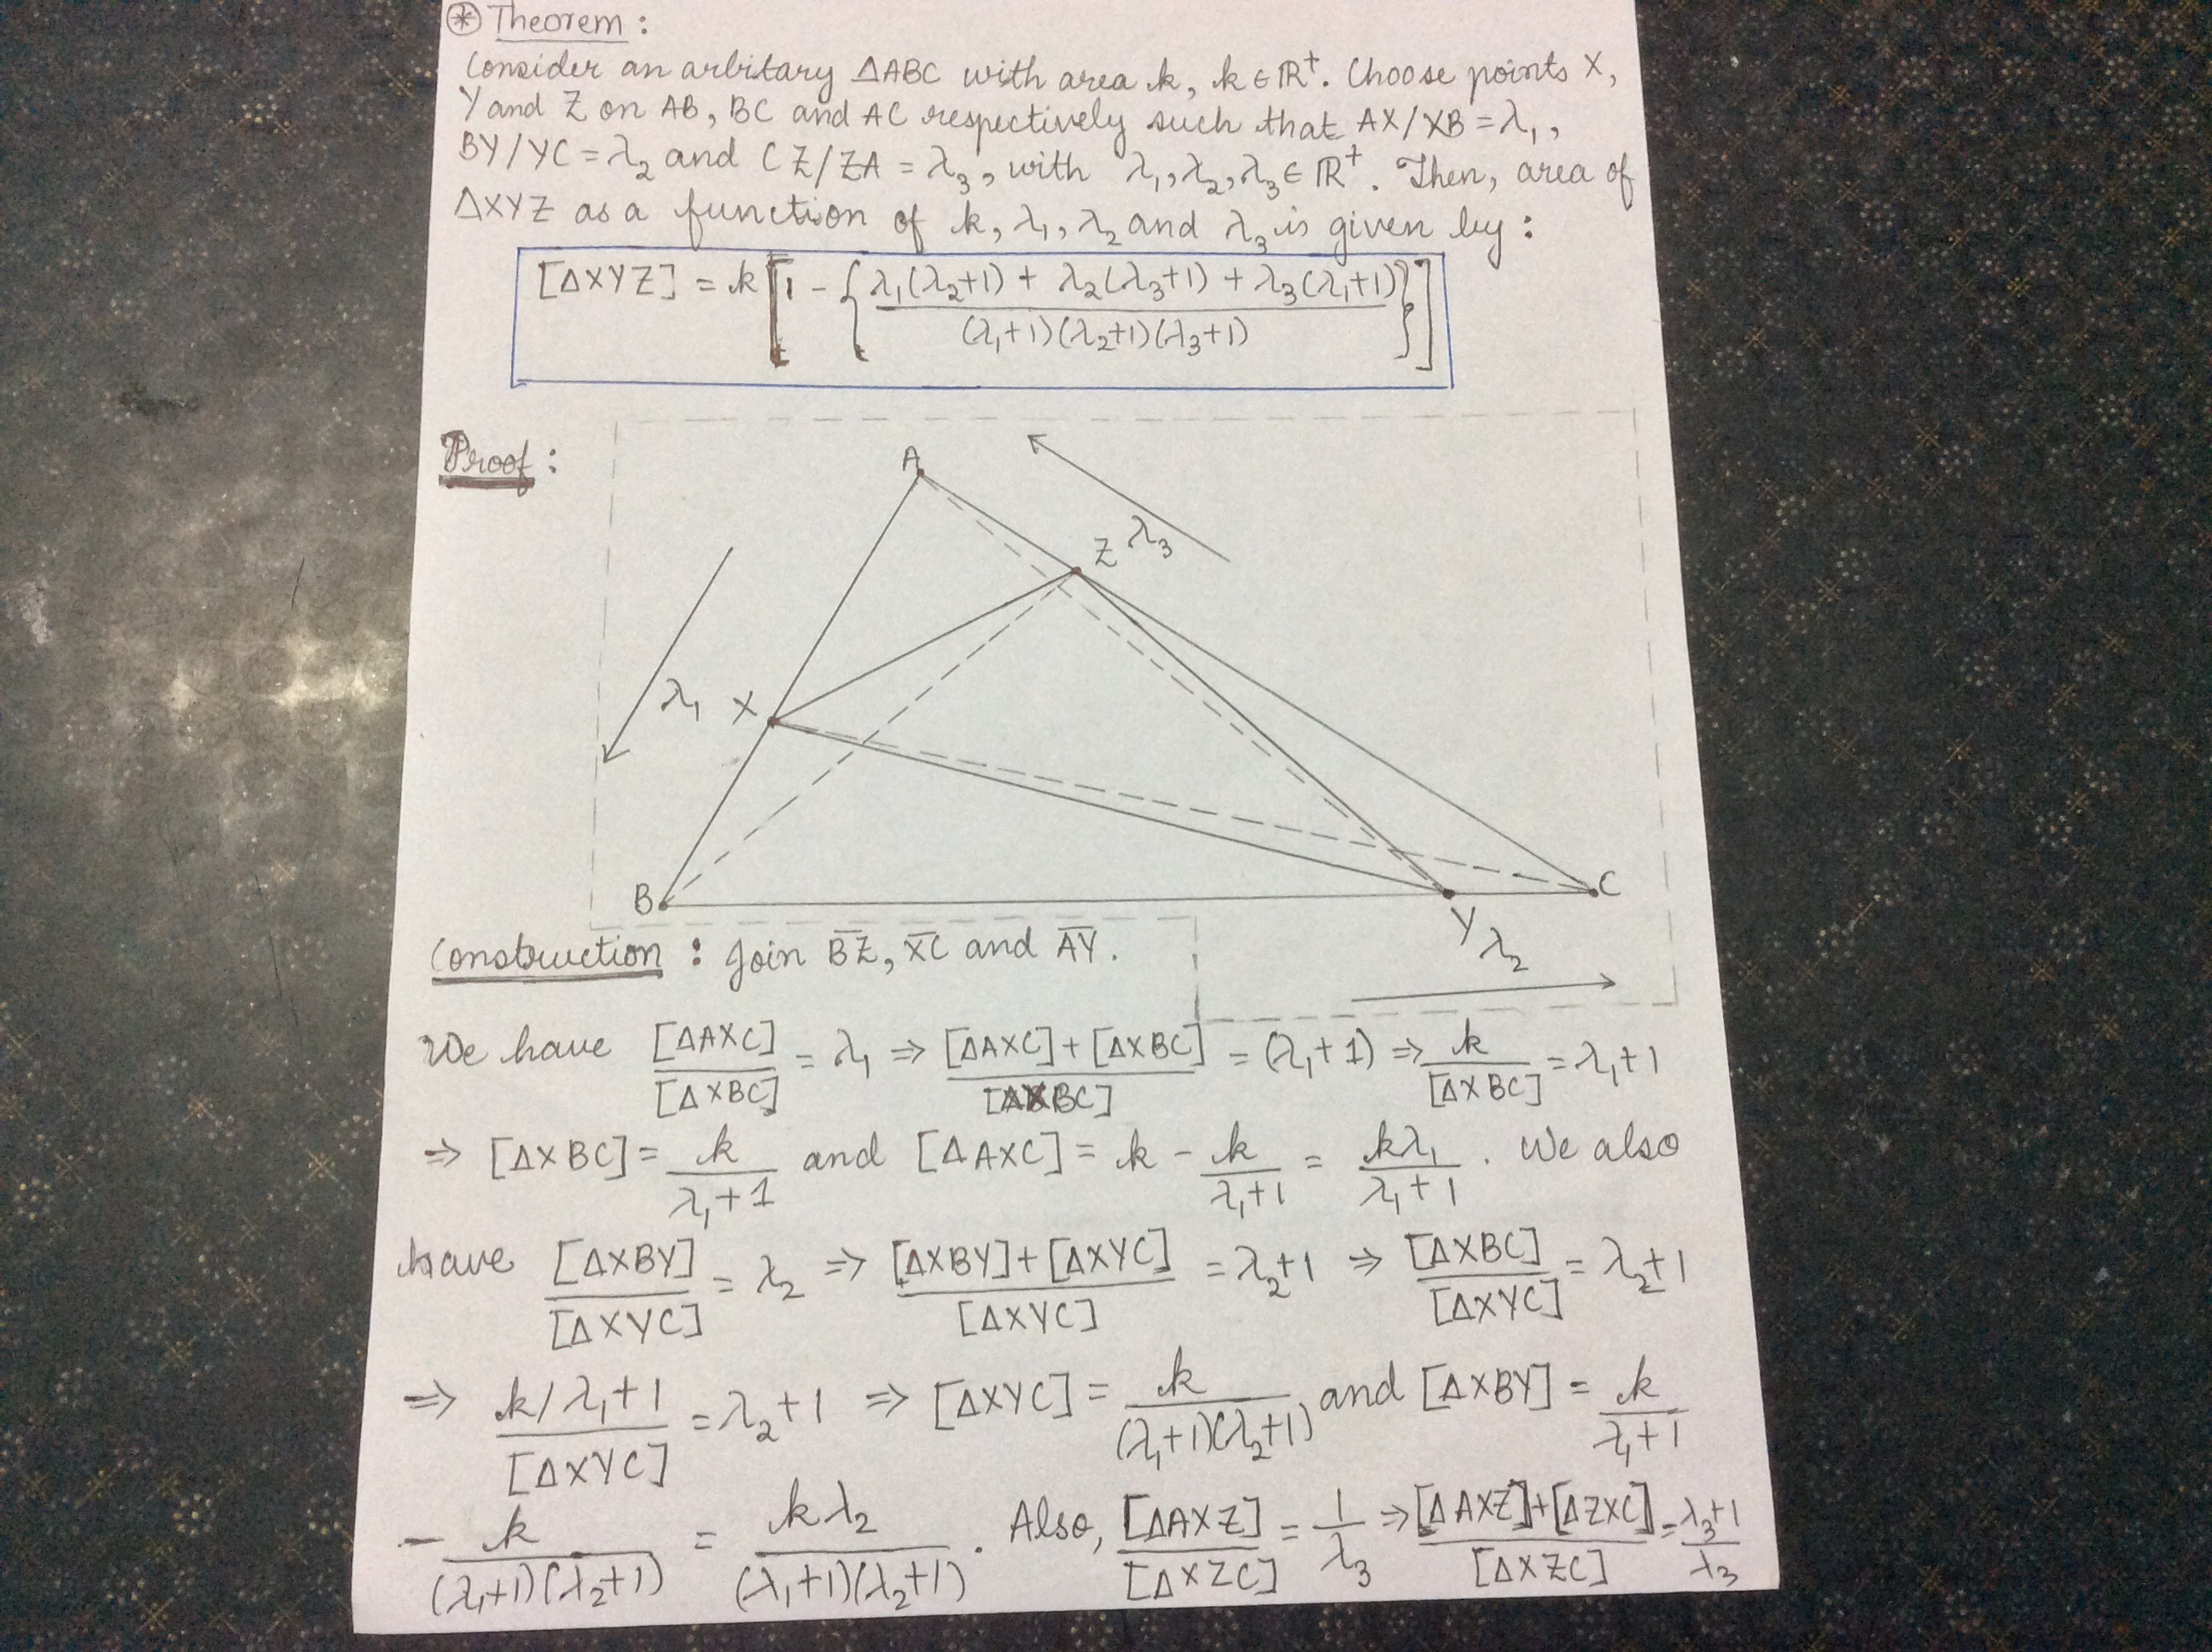 ⊛ Theorem :
Consider an arbitary ΔABC with area k, k ∈ ℝ⁺. Choose points X,
Y and Z on AB, BC and AC respectively such that AX/XB = λ₁,
BY/YC = λ₂ and CZ/ZA = λ₃, with λ₁, λ₂, λ₃ ∈ ℝ⁺. Then, area of
ΔXYZ as a function of k, λ₁, λ₂ and λ₃ is given by :
[ΔXYZ] = k [1 - {(λ₁(λ₂+1) + λ₂(λ₃+1) + λ₃(λ₁+1)) / ((λ₁+1)(λ₂+1)(λ₃+1))}]
Proof :
A
Z λ₃
λ₁ X
B
C
Y λ₂
Construction : Join B̅Z̅, X̅C̅ and A̅Y̅.
We have [ΔAXC]/[ΔXBC] = λ₁ ⇒ ([ΔAXC] + [ΔXBC])/[ΔXBC] = (λ₁+1) ⇒ k/[ΔXBC] = λ₁+1
⇒ [ΔXBC] = k/(λ₁+1) and [ΔAXC] = k - k/(λ₁+1) = kλ₁/(λ₁+1). We also
have [ΔXBY]/[ΔXYC] = λ₂ ⇒ ([ΔXBY]+[ΔXYC])/[ΔXYC] = λ₂+1 ⇒ [ΔXBC]/[ΔXYC] = λ₂+1
⇒ (k/λ₁+1)/[ΔXYC] = λ₂+1 ⇒ [ΔXYC] = k/((λ₁+1)(λ₂+1)) and [ΔXBY] = k/(λ₁+1)
- k/((λ₁+1)(λ₂+1)) = kλ₂/((λ₁+1)(λ₂+1)). Also, [ΔAXZ]/[ΔXZC] = 1/λ₃ ⇒ ([ΔAXZ]+[ΔZXC])/[ΔXZC] = (λ₃+1)/λ₃